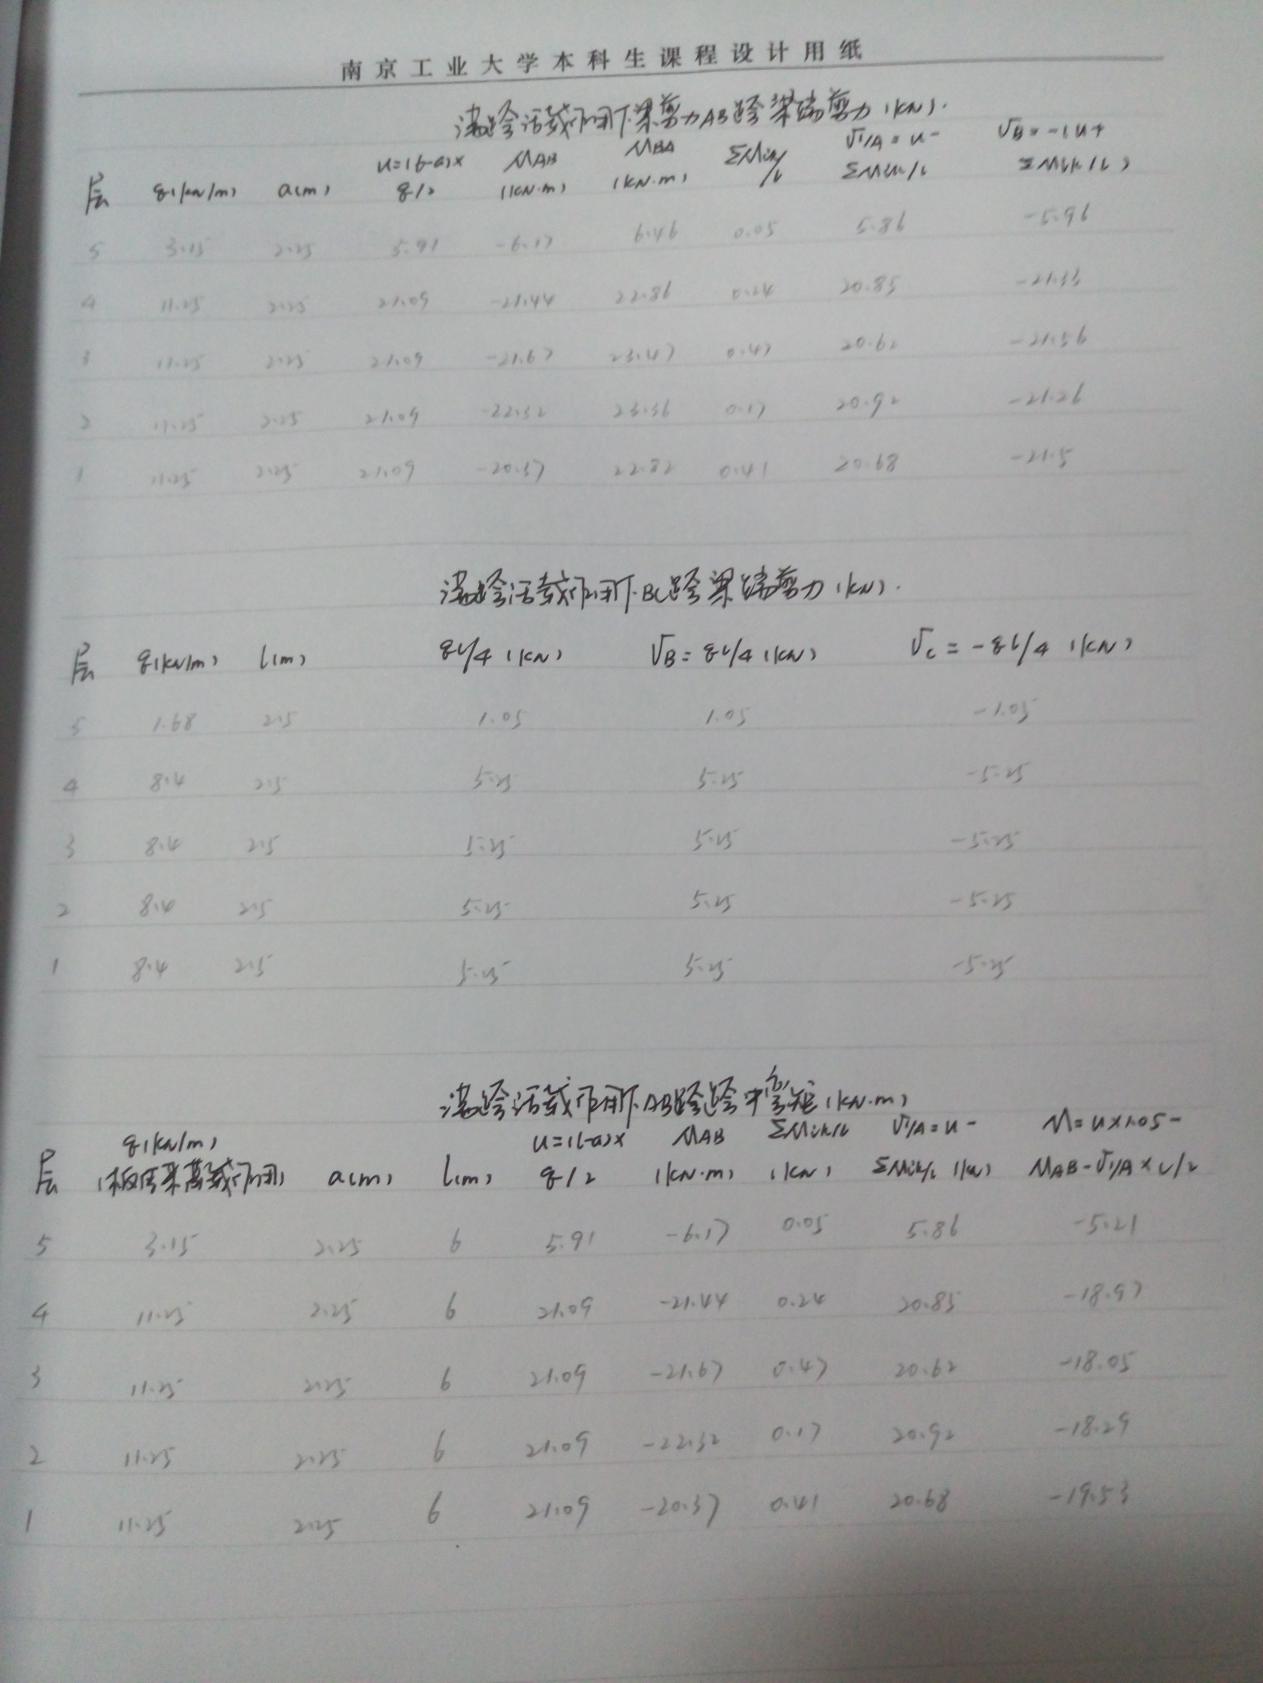 南京工业大学本科生课程设计用纸
满跨活载作用下梁剪力AB跨梁端剪力(kN).
层 q(kN/m) a(m) u=(l-a)×q/2 MAB(kN·m) MBA(kN·m) ΣMik/l V1/A=u-ΣMik/l VB=-(u+ΣMik/l)
5 3.15 2.25 5.91 -6.17 6.46 0.05 5.86 -5.96
4 11.25 2.25 21.09 -21.44 22.86 0.24 20.85 -21.33
3 11.25 2.25 21.09 -21.67 23.47 0.47 20.62 -21.56
2 11.25 2.25 21.09 -22.32 23.36 0.17 20.92 -21.26
1 11.25 2.25 21.09 -20.37 22.82 0.41 20.68 -21.5
满跨活载作用下BC跨梁端剪力(kN).
层 q(kN/m) l(m) ql/4(kN) VB=ql/4(kN) Vc=-ql/4(kN)
5 1.68 2.5 1.05 1.05 -1.05
4 8.4 2.5 5.25 5.25 -5.25
3 8.4 2.5 5.25 5.25 -5.25
2 8.4 2.5 5.25 5.25 -5.25
1 8.4 2.5 5.25 5.25 -5.25
满跨活载作用下AB跨跨中弯矩(kN·m)
层 q(kN/m)(板传来荷载作用) a(m) l(m) u=(l-a)×q/2 MAB(kN·m) ΣMik/l(kN) V1/A=u-ΣMik/l(kN) M=u×1.05-MAB-V1/A×l/2
5 3.15 2.25 6 5.91 -6.17 0.05 5.86 -5.21
4 11.25 2.25 6 21.09 -21.44 0.24 20.85 -18.97
3 11.25 2.25 6 21.09 -21.67 0.47 20.62 -18.05
2 11.25 2.25 6 21.09 -22.32 0.17 20.92 -18.29
1 11.25 2.25 6 21.09 -20.37 0.41 20.68 -19.53